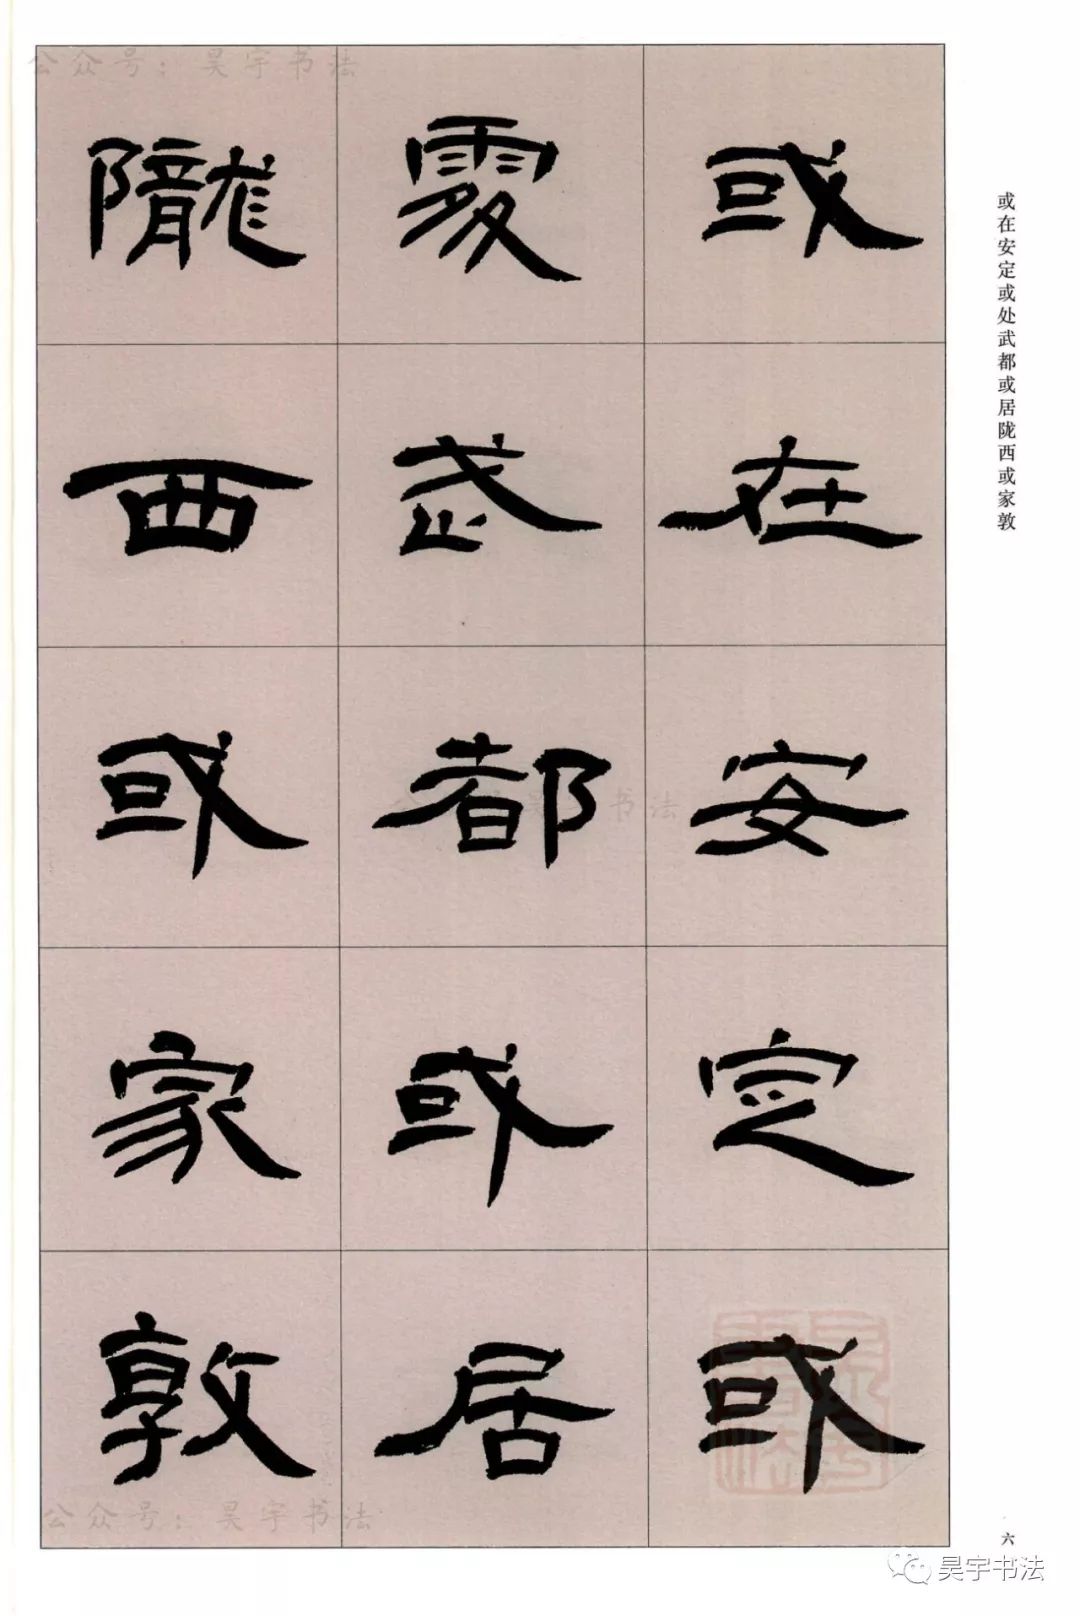 公众号：昊宇书法
或在安定或
處武都或居
隴西或家敦
或在安定或处武都或居陇西或家敦
六
公众号：昊宇书法
昊宇书法